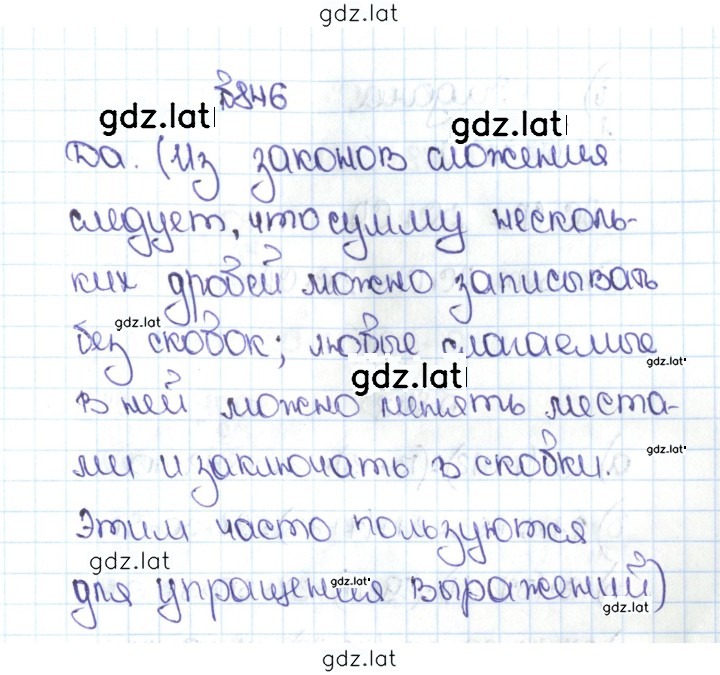 gdz.lat
№846
gdz.lat
gdz.lat
Да. (Из законов сложения
следует, что сумму несколь-
ких дробей можно записывать
gdz.lat
без скобок; любые слагаемые
gdz.lat
gdz.lat
в ней можно менять места-
ми и заключать в скобки.
gdz.lat
Этим часто пользуются
gdz.lat
для упрощения выражений)
gdz.lat
gdz.lat
gdz.lat